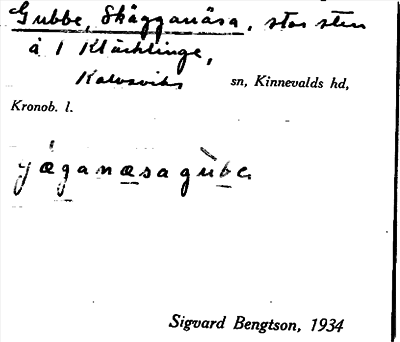 Gubbe, Skägganäsa, stor sten
å 1 Kläcklinge,
Kalvsviks sn, Kinnevalds hd,
Kronob. l.
Sigvard Bengtson, 1934